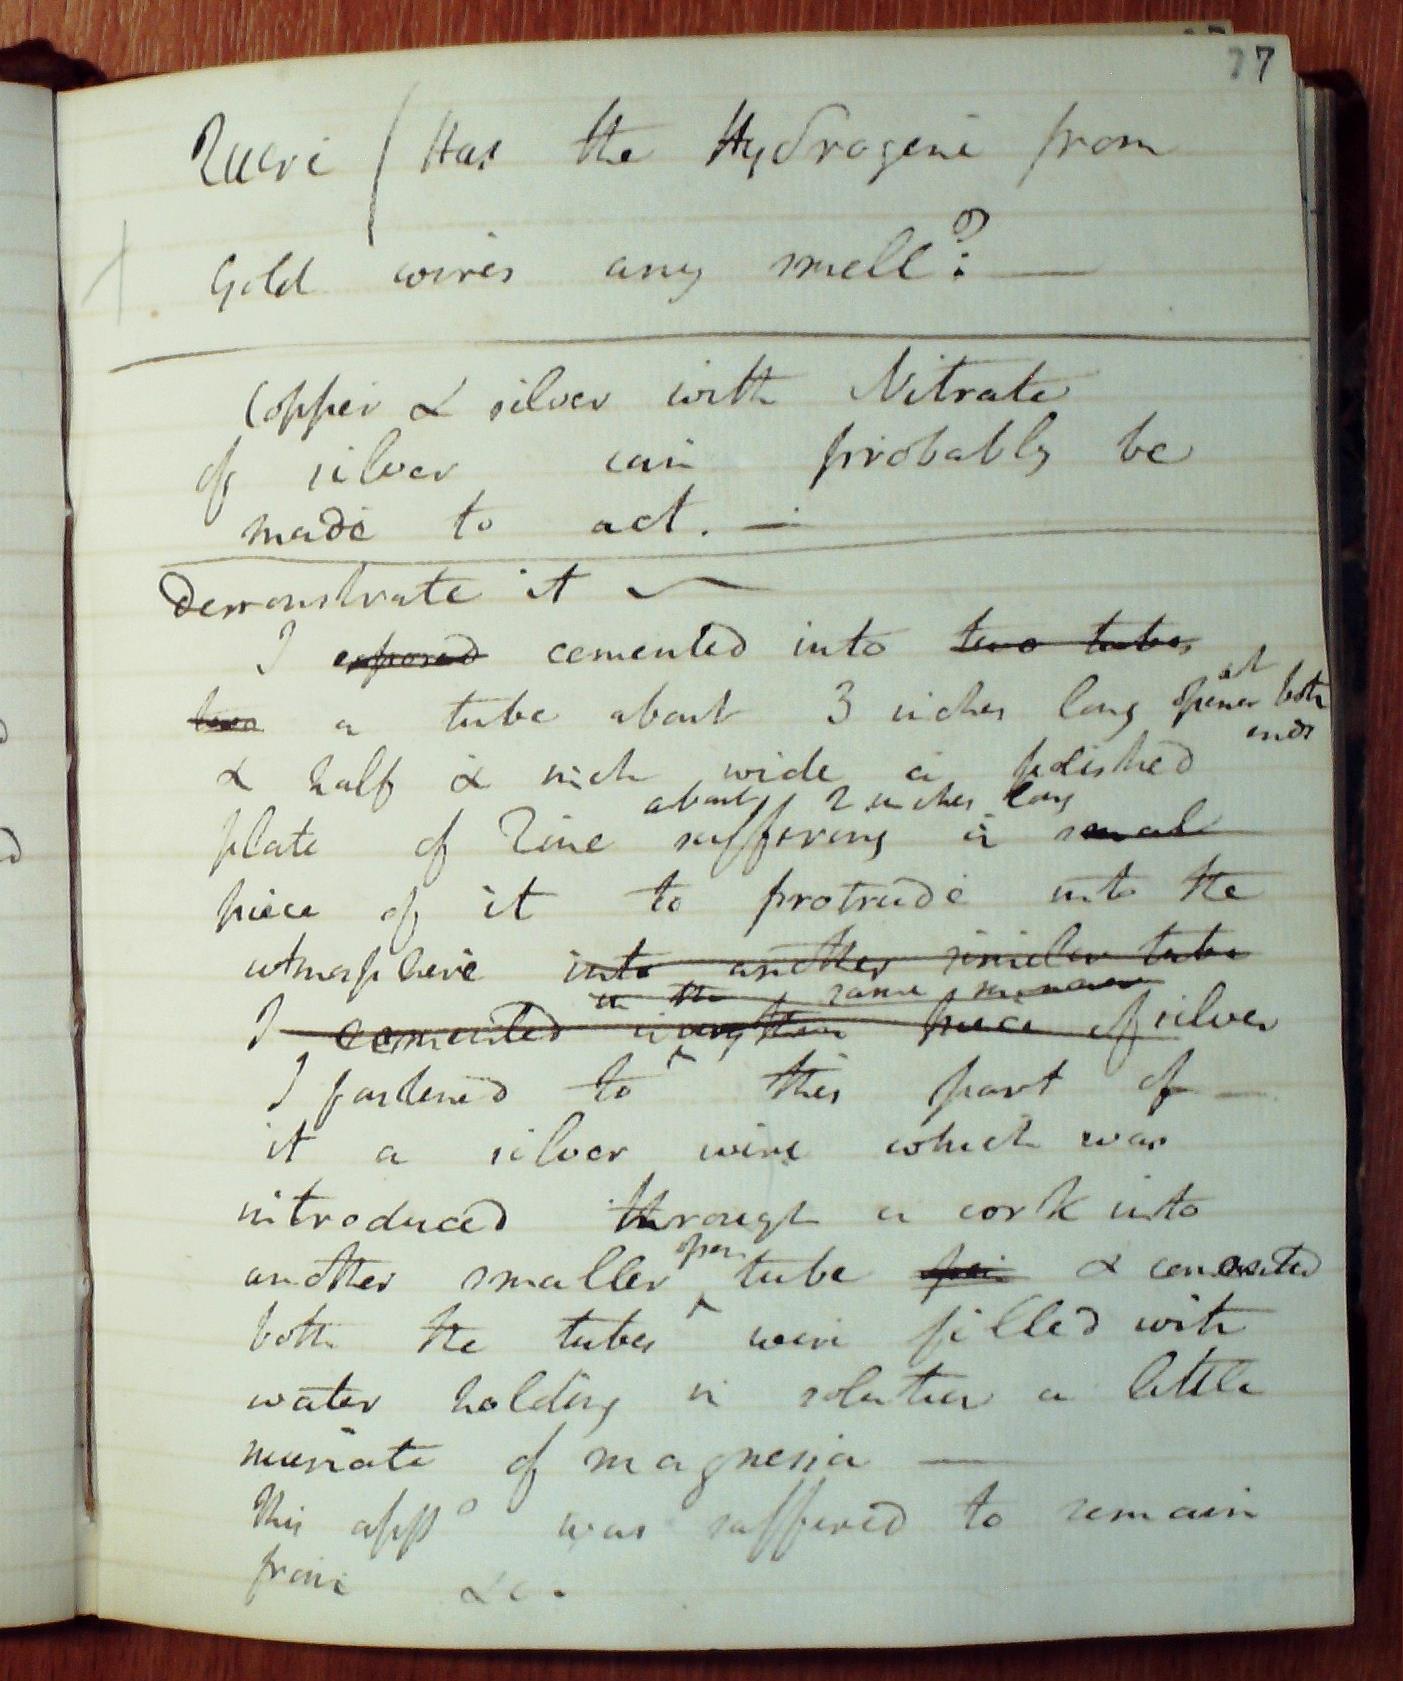 77
Quere / Has the Hydrogene from
Gold wires any smell? —
Copper & silver with Nitrate
of silver can probably be
made to act. —
Demonstrate it ~
I exposed cemented into two tubes
two a tube about 3 inches long open at both ends
& half a inch wide a polished
about 2 inches long
plate of Zinc suffering a smal
piece of it to protrude into the
atmosphere into another similar tube
in the same manner
I cemented a piece of silver
I fastened to this part of —
it a silver wire which was
introduced through a cork into
another smaller open tube & cemented
both the tubes were filled with
water holding in solution a little
muriate of magnesia —
This appo was suffered to remain
from &c.